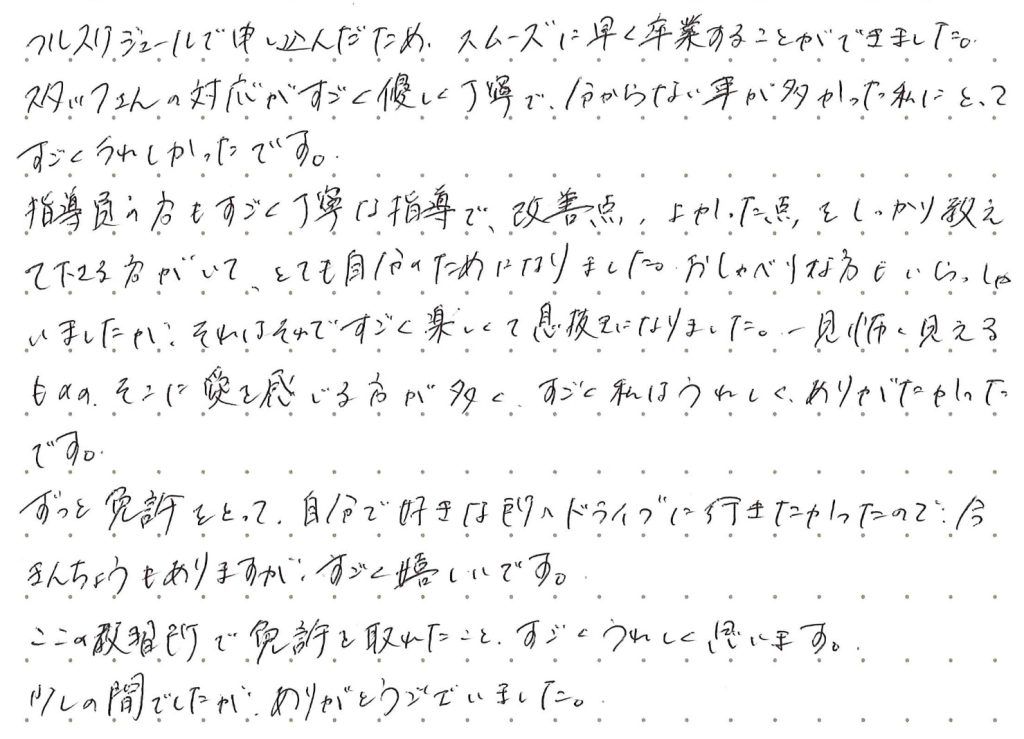 フルスケジュールで申し込んだため、スムーズに早く卒業することができました。
スタッフさんの対応がすごく優しく丁寧で、分からない事が多かった私にとって
すごくうれしかったです。
指導員の方もすごく丁寧な指導で、改善点、よかった点をしっかり教え
てくださる方がいて、とても自分のためになりました。おしゃべりな方もいらっしゃ
いましたが、それはそれですごく楽しくて息抜きになりました。一見怖く見える
ものの、そこに愛を感じる方が多く、すごく私はうれしく、ありがたかった
です。
ずっと免許をとって、自分で好きな所へドライブに行きたかったので、今
きんちょうもありますが、すごく嬉しいです。
ここの教習所で免許を取れたこと、すごくうれしく思います。
少しの間でしたが、ありがとうございました。